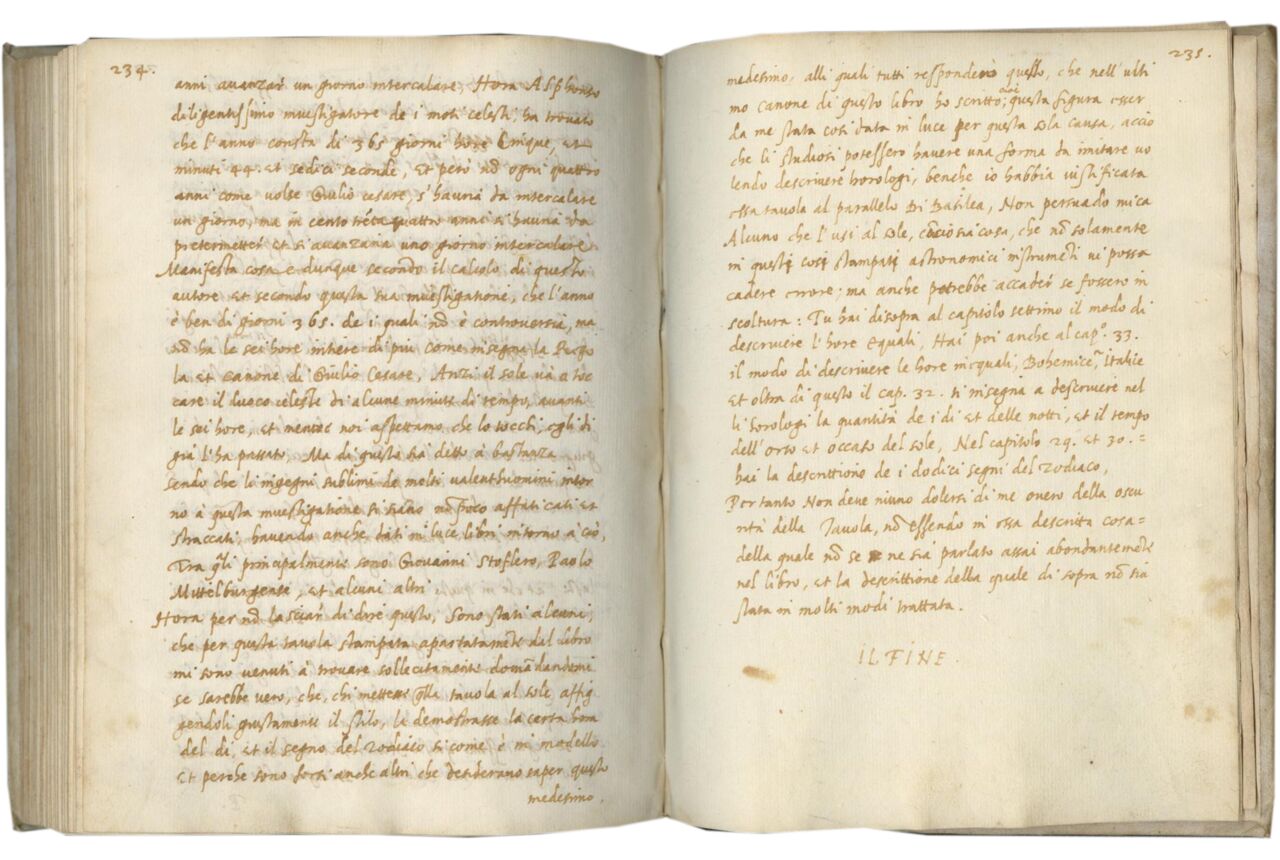 234.
anni avanzar un giorno intercalare, Hora Alphonso
diligentissimo investigatore de i moti celesti, ha trovato
che l'anno consta di 365 giorni hore Cinque, et
minuti 44. et sedici seconde, Et però nõ ogni quattro
anni come volse Giulio cesare, s'havria da intercalare
un giorno, ma in cento trẽta quattro anni si havria da
pretermetter et si avanzaria uno giorno intercalare
Manifesta cosa è dunque secondo il calculo di questo
autore et secondo questa sua investigatione, che l'anno
è ben di giorni 365. de i quali nõ è controversia, ma
nõ ha le sei hore intiere di più come insegna la Rego
la et canone di Giulio Cesare, Anzi il sole và a toc
care il luoco celeste di alcune minute di tempo, avanti
le sei hore, et mentre noi aspettamo che lo tocchi, egli di
già l'ha passato. Ma di questo hai detto à bastanza
sendo che li ingegni sublimi de molti valenthuomini intor
no à questa investigatione si siano nõ poco affaticati et
straccati, havendo anche dati in luce libri intorno a ciò,
Tra q̃li principalmente sono Giovanni Stoflero, Paolo
Mittelburgense, et alcuni altri
Hora per nõ lasciar di dire questo, Sono stati alcuni,
che per questa tavola stampata apartatamẽte dal libro
mi sono venuti à trovare sollecitamente domãdandomi
se sarebbe vero, che, chi mettesse q̃lla tavola al sole affig
gendoli giustamente il stilo, la demostrasse la certa hora
del di, et il segno del zodiaco si come è in modello
Et perche sono forsi anche altri che desiderano saper questo
medesimo,
235.
medesimo, alli quali tutti respondemo questo, che nell'ulti
mo canone di questo libro ho scritto, questa figura esser
da me stata così data in luce per questa sola causa, acciò
che li studiosi potessero havere una forma da imitare vo
lendo descrivere horologi, benche io habbia iustificata
essa tavola al parallelo Di Basilea, Non persuado mica
Alcuno che l'usi al sole, cõciosia cosa, che nõ solamente
in questi così stampati astronomici instrumẽti vi possa
cadere errore; ma anche potrebbe accader se fossero in
scoltura: Tu hai disopra al capitolo settimo il modo di
descrivere l'hore Equali, Hai poi anche al cap.º 33.
il modo di descrivere le hore inequali, Bohemice, Italice
et oltra di questo il cap. 32. ti insegna a descrivere nel
li horologi la quantità de i di et delle notti, et il tempo
dell'orto et occaso del sole, Nel capitolo 29. et 30. =
hai la descrittione de i dodici segni del zodiaco,
Per tanto Non deve niuno dolersi di me overo della oscu
rità della Tavola, nõ essendo in essa descritta cosa=
della quale nõ se ne sia parlato assai abondantemẽte
nel libro, et la descrittione della quale di sopra nõ sia
stata in molti modi trattata.
IL FINE.